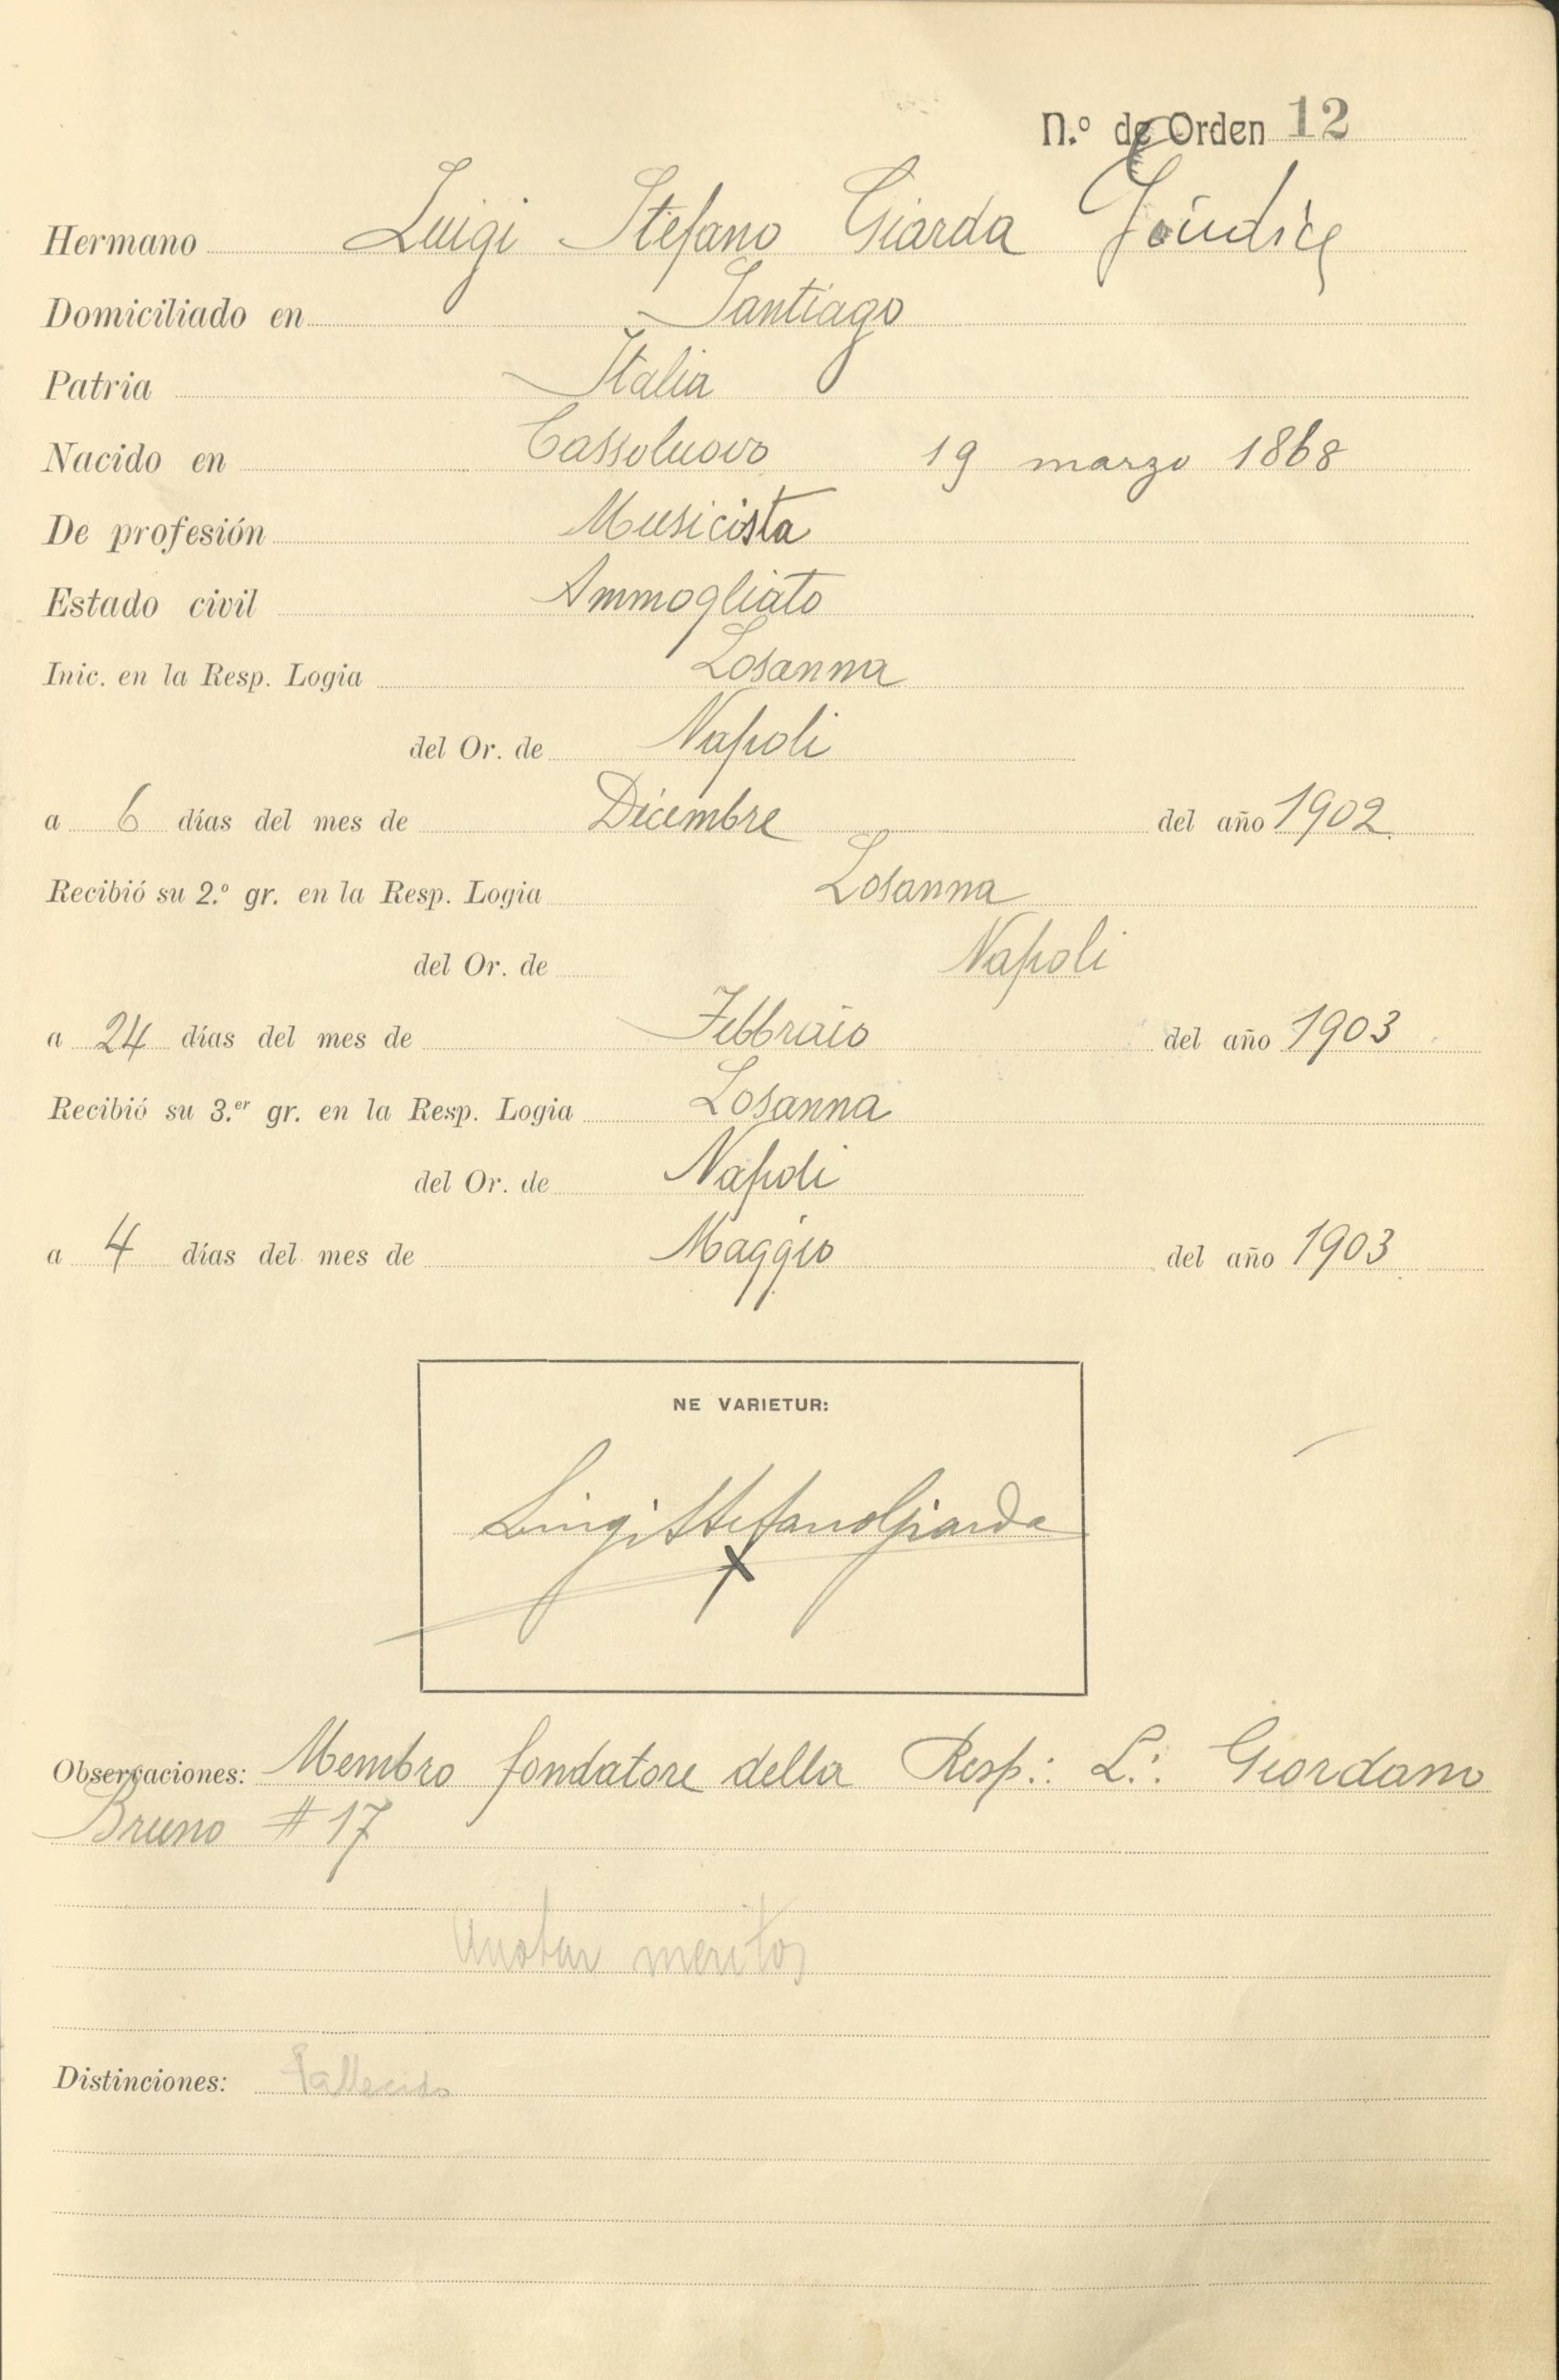 N.º de Orden 12
Hermano Luigi Stefano Giarda Giudice
Domiciliado en Santiago
Patria Italia
Nacido en Cassolnovo 19 marzo 1868
De profesión Musicista
Estado civil Ammogliato
Inic. en la Resp. Logia Losanna
del Or. de Napoli
a 6 días del mes de Dicembre del año 1902
Recibió su 2.º gr. en la Resp. Logia Losanna
del Or. de Napoli
a 24 días del mes de Febbraio del año 1903
Recibió su 3.er gr. en la Resp. Logia Losanna
del Or. de Napoli
a 4 días del mes de Maggio del año 1903
NE VARIETUR:
Luigi Stefano Giarda
X
Observaciones: Membro fondatore della Resp∴ L∴ Giordano
Bruno # 17
Anotar meritos
Distinciones: fallecido